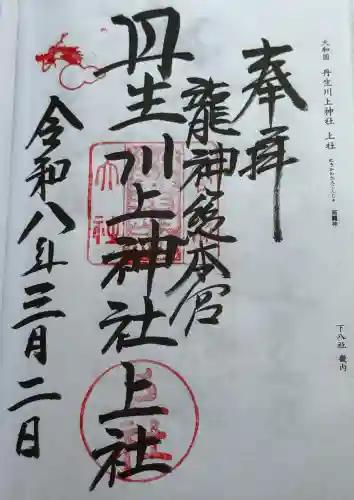 大和國 丹生川上神社 上社
下八社 畿内
奉拝
龍神総本宮
丹生川上神社上社
令和八年三月二日